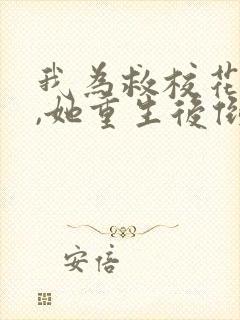 我为救校花
,她重生后倒
安倍